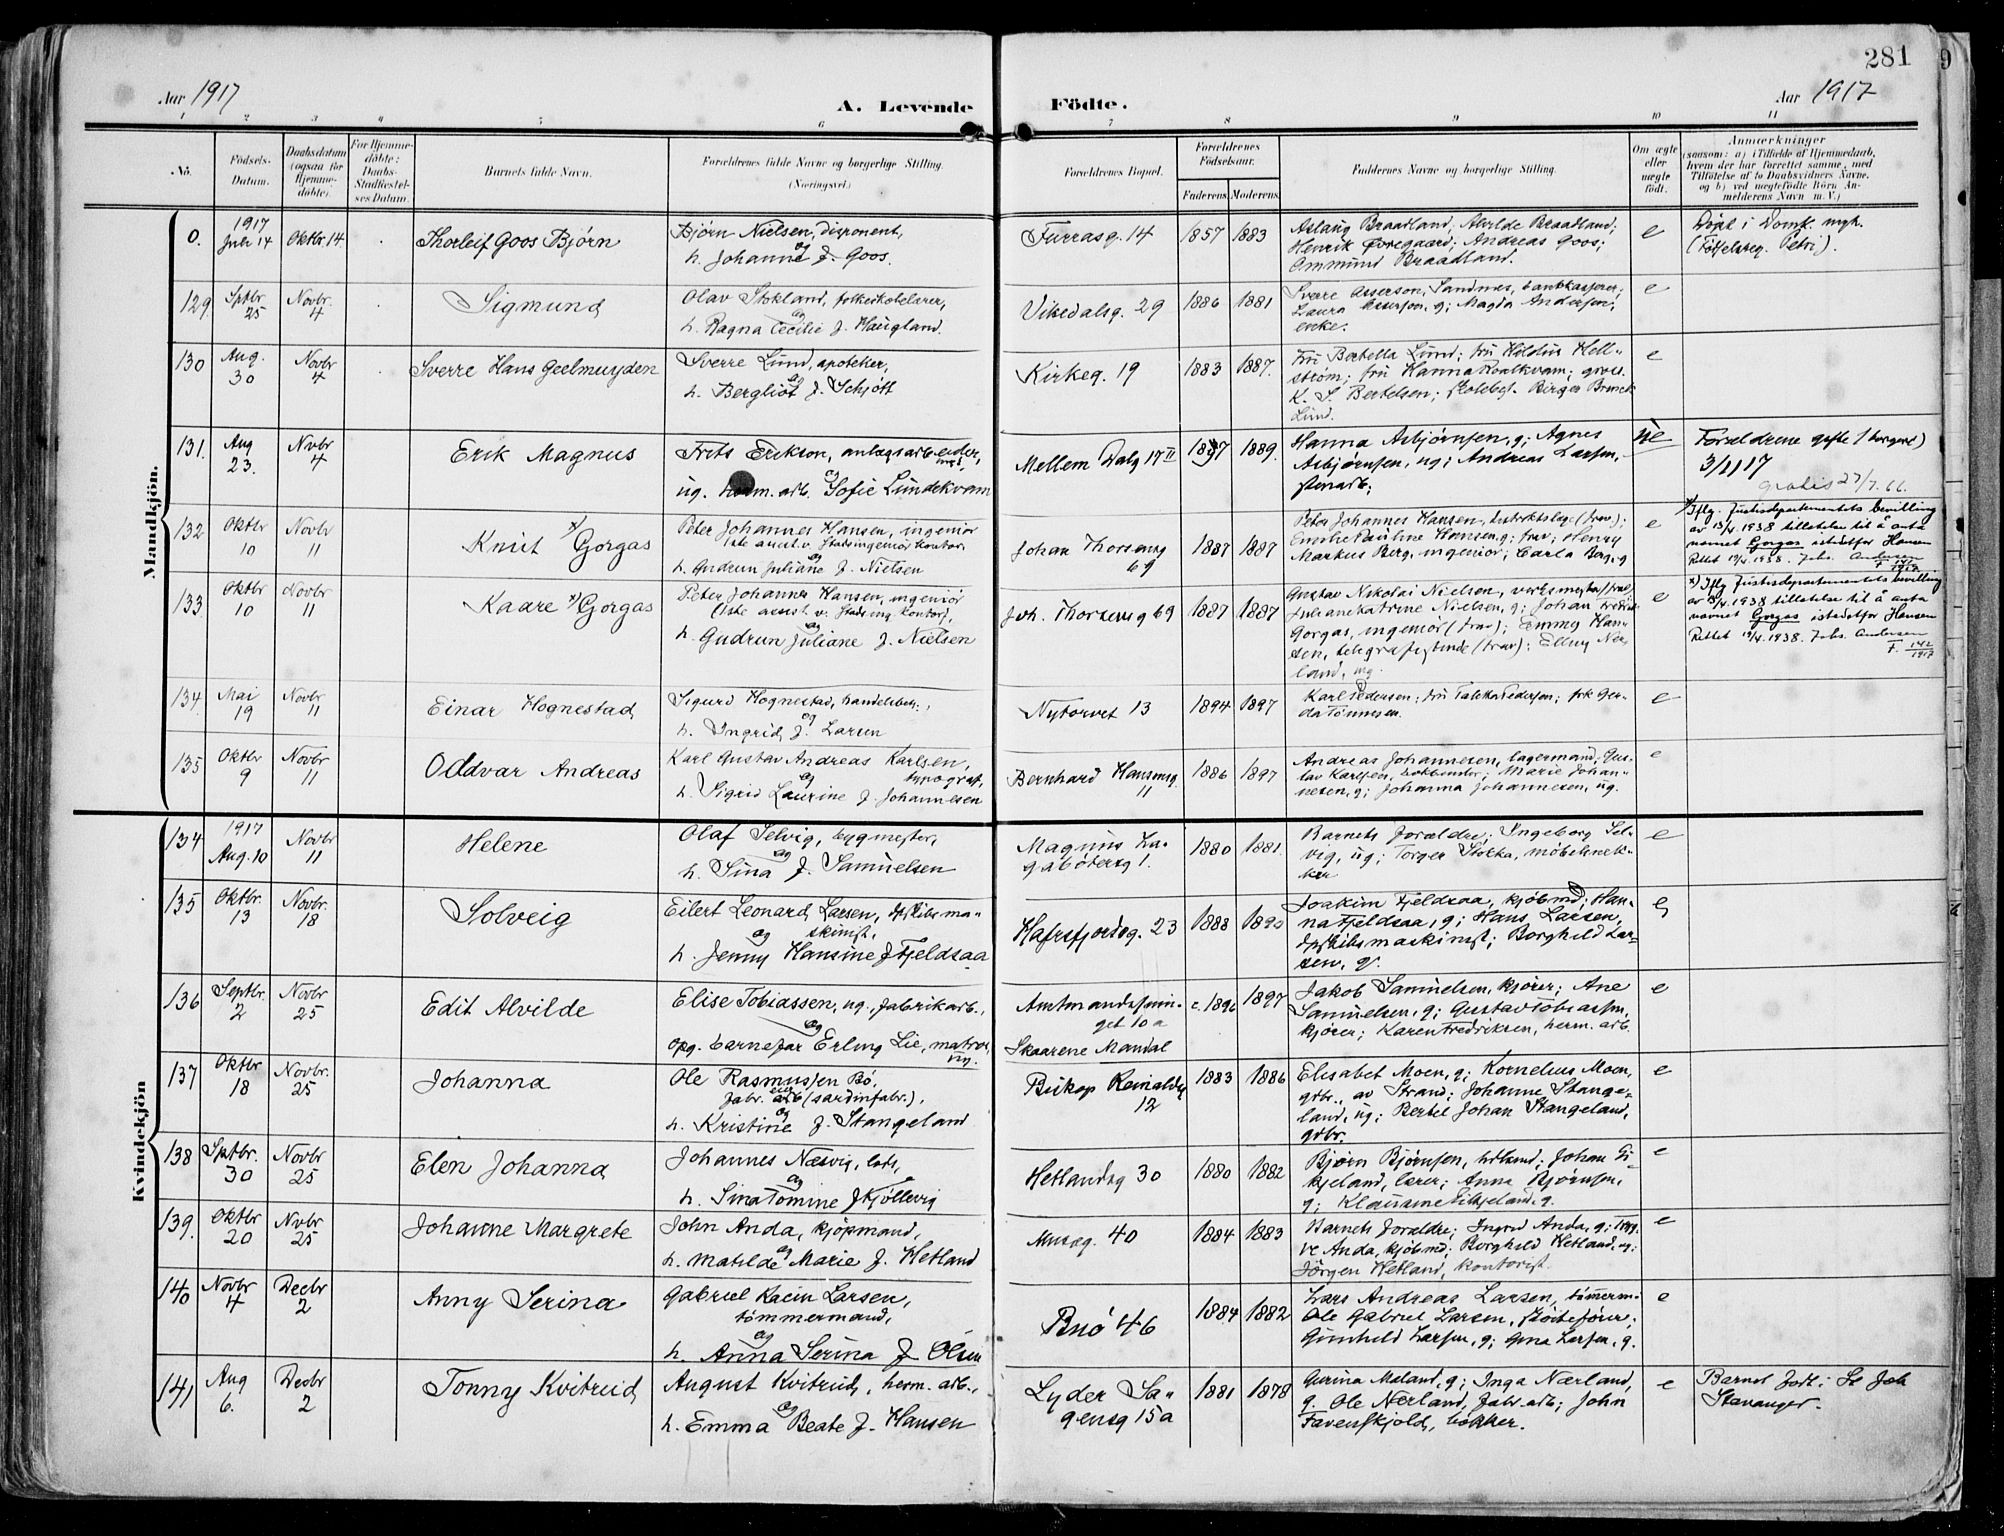 281
9
Aar 1917
A. Levende Födte.
Aar 1917
1 2 3 4 5 6 7 8 9 10 11
No.
Födsels-
Datum.
Daabsdatum
(ogsaa for
Hjemme-
döbte).
For Hjemme-
döbte:
Daabs-
Stadfæstel-
ses Datum.
Barnets fulde Navn.
Forældrenes fulde Navne og borgerlige Stilling.
(Næringsvei.)
Forældrenes Bopæl.
Forældrenes
Födselsaar.
Faderens. Moderens.
Faddernes Navne og borgerlige Stilling.
Om ægte
eller
uægte
födt.
Anmærkninger
(saasom: a) i Tilfælde af Hjemmedaab,
hvem der har forrettet samme, med
Tilföielse af to Daabsvidners Navne,
og b) ved uægtefödte Börn An-
melderens Navn m. V.)
Mandkjön.
0.
1917
Juli 14
Oktbr 14
Thorleif Goos Bjørn
Bjørn Nielsen, disponent,
og
h. Johanne f. Goos.
Furrasg. 14
1857 1883
Aslaug Braadland, Alvilde Braadland;
Henrik Øvregaard; Andreas Goos;
Ommund Braadland.
e
Døpt i Domk. mgh.
129
Sptbr. 25
Novbr. 4
Sigmund
Olav Stokland,
og
h. Ragna Cecilie f. Haugland.
Vikedalsg. 29
1886 1881
Sverre Asserson, Sandnes, bankkasjerer;
Laura Asserson, g; Magda Andersen,
enke.
e
130
Aug. 30
Novbr 4
Sverre Hans Geelmuyden
Sverre Lund, apoteker,
og
h. Bergliot f. Schjøtt
Kirkeg. 19
1883 1887.
Fru Bertella Lund; fru Hildur Hell-
strøm; fru Hanna Roalkvam; gross.
K. S. Bertelsen; Birger Brinck
Lund.
e
131.
Aug 23.
Nvbr 4
Erik Magnus
Frits Erikson, anlægsarbeider,
og
ug. herm. arb. Sofie Lundekvam
Mellem Dalg 17 II
1887 1889.
Hanna Asbjørnsen, g; Agnes
Asbjørnsen, ug; Andreas Larsen,
stenarb;
ue
Forældrene gifte (borgerl)
3/11 17
gratis 27/7. 66.
132
Oktbr 10
Novbr 11
Knut x) Gorgas
Peter Johannes Hansen, ingeniør
1ste assist. v. Stadsingeniør kontor,
og
h. Gudrun Juliane f. Nielsen
Johan Thorsensg 69
1887 1887
Peter Johannes Hansen, distriktslege (frav);
Emilie Pauline Hansen, g; frav; Henry
Markus Berg, ingeniør; Carla Berg, g
e
x) Iflg. Justisdepartementets bevilling
av 13/4. 1938 tillatelse til å anta
navnet Gorgas istedetfor Hansen
Rettet 19/4. 1938. Johs. Andersen
133
Oktbr 10
Novbr 11
Kaare x) Gorgas
Peter Johannes Hansen, ingeniør
(1ste assist. v. Stadsing kontor),
og
h. Gudrun Juliane f. Nielsen
Joh. Thorsensg 69
1887 1887
Gustav Nikolai Nielsen, verksmester (frav);
Juliane Katrine Nielsen, g; Johan Fredrik
Gorgas, ingeniør (frav); Emmy Han-
sen, telegrafistinde (frav); Elluy Nes-
land, ug.
e
x) Iflg Justisdepartementets bevilling
av 13/4. 1938 tillatelse til å anta
navnet Gorgas istedetfor Hansen
Rettet 19/4. 1938. Johs. Andersen
F. 142/1917
134.
Mai 19
Novbr. 11
Einar Hognestad
Sigurd Hognestad, handelsbetj.,
og
h. Ingrid f. Larsen
Nytorvet 13
1894 1897
Karl Pedersen; fru Talette Pedersen; frk Ger-
da Tønnesen.
e
135
Oktbr 9
Novbr. 11
Oddvar Andreas
Karl Gustav Andreas Karlsen,
typograf,
og
h. Sigrid Laurine f. Johannesen
Bernhard Hansensg. 11
1886 1897
Andreas Johannesen, lagermand; Gus-
tav Karlsen, bokbinder; Marie Johan-
nesen, g; Johanna Johannesen, ug.
e
Kvindekjön
134
1917
Aug. 10
Novbr 11
Helene
Olaf Selvig, bygmester,
og
h. Sina f. Samuelsen
Magnus La-
gabøtersg 1.
1880 1881.
Barnets forældre; Ingeborg Sel-
vig, ug; Torger Stokka, møbelsnek-
ker
e
135
Oktbr. 13
Novbr. 18
Solveig
Eilert Leonard Larsen, dpskibsma-
skinist,
og
h. Jenny Hansine f Fjeldsaa
Hafrsfjordsg. 23
1888 1890
Joakim Fjeldsaa, kjøbmd; Han-
na Fjeldsaa, g; Hans Larsen,
dpskibsmaskinist; Borghild Lar-
sen, g.
e
136
Septbr. 2
Novbr. 25
Edit Alvilde
Elise Tobiassen, ug., fabrikarb.,
og
opg. barnefar Erling Lie, matros,
ug.
get 10 a
Skaarene Mandal
c. 1896 1897
Jakob Samuelsen, kjører; Ane
Samuelsen, g; Gustav Tobiassen,
kjører; Karen Fredriksen, herm. arb.
e
137
Oktbr 18
Novbr. 25
Johanna
Ole Rasmussen Bø,
fabr. arb (sardinfabr.),
og
h. Kristine f. Stangeland
Biskop Reinaldsg 12
1883 1886
Elisabet Moen, g; Kornelius Moen,
grbr., av Strand; Johanne Stange-
land, ug; Bertel Johan Stangeland,
grbr.
e
138
Sptbr. 30
Novbr 25
Elen Johanna
Johannes Næsvig, lods,
og
h. Sina Tomine f Kjøllevig
Hetlandsg 30
1880 1882
Bjørn Bjørnsen, Johan Ei-
kjeland, lærer; Anna Bjørnsen,
g; Eikjeland, g.
e
139.
Oktbr 20
Nvbr 25
Johanne Margrete
John Anda, kjøpmand,
og
h. Matilde Marie f. Hetland
Museg. 40
1884 1883
Barnets forældre; Ingrid Anda, g; Tryg-
ve Anda, kjøbmd; Borghild Hetland, ug;
Jørgen Hetland, kontorist.
e
140
Novbr 4
Decbr 2
Anny Serina
Gabriel Karin Larsen,
tømmermand,
og
h. Anna Serina f Olsen
Buø 46
1884 1882
Lars Andreas Larsen, tømmerm.
Ole Gabriel Larsen, skøitefører;
Gunhild Larsen, g; Gina Larsen, g.
e
141
Aug 6.
Decbr 2
Tonny Kvitrud
August Kvitrud, herm. arb.,
og
h. Emma Beate f. Hansen
Lyder Sa-
gensg 15a
1881 1878
Gurina Meland, g; Inga Nærland,
g. Ole Nærland, fabr. arb; John
Favenskjold, bøkker.
e
Barnet født i St Joh
Stavanger.